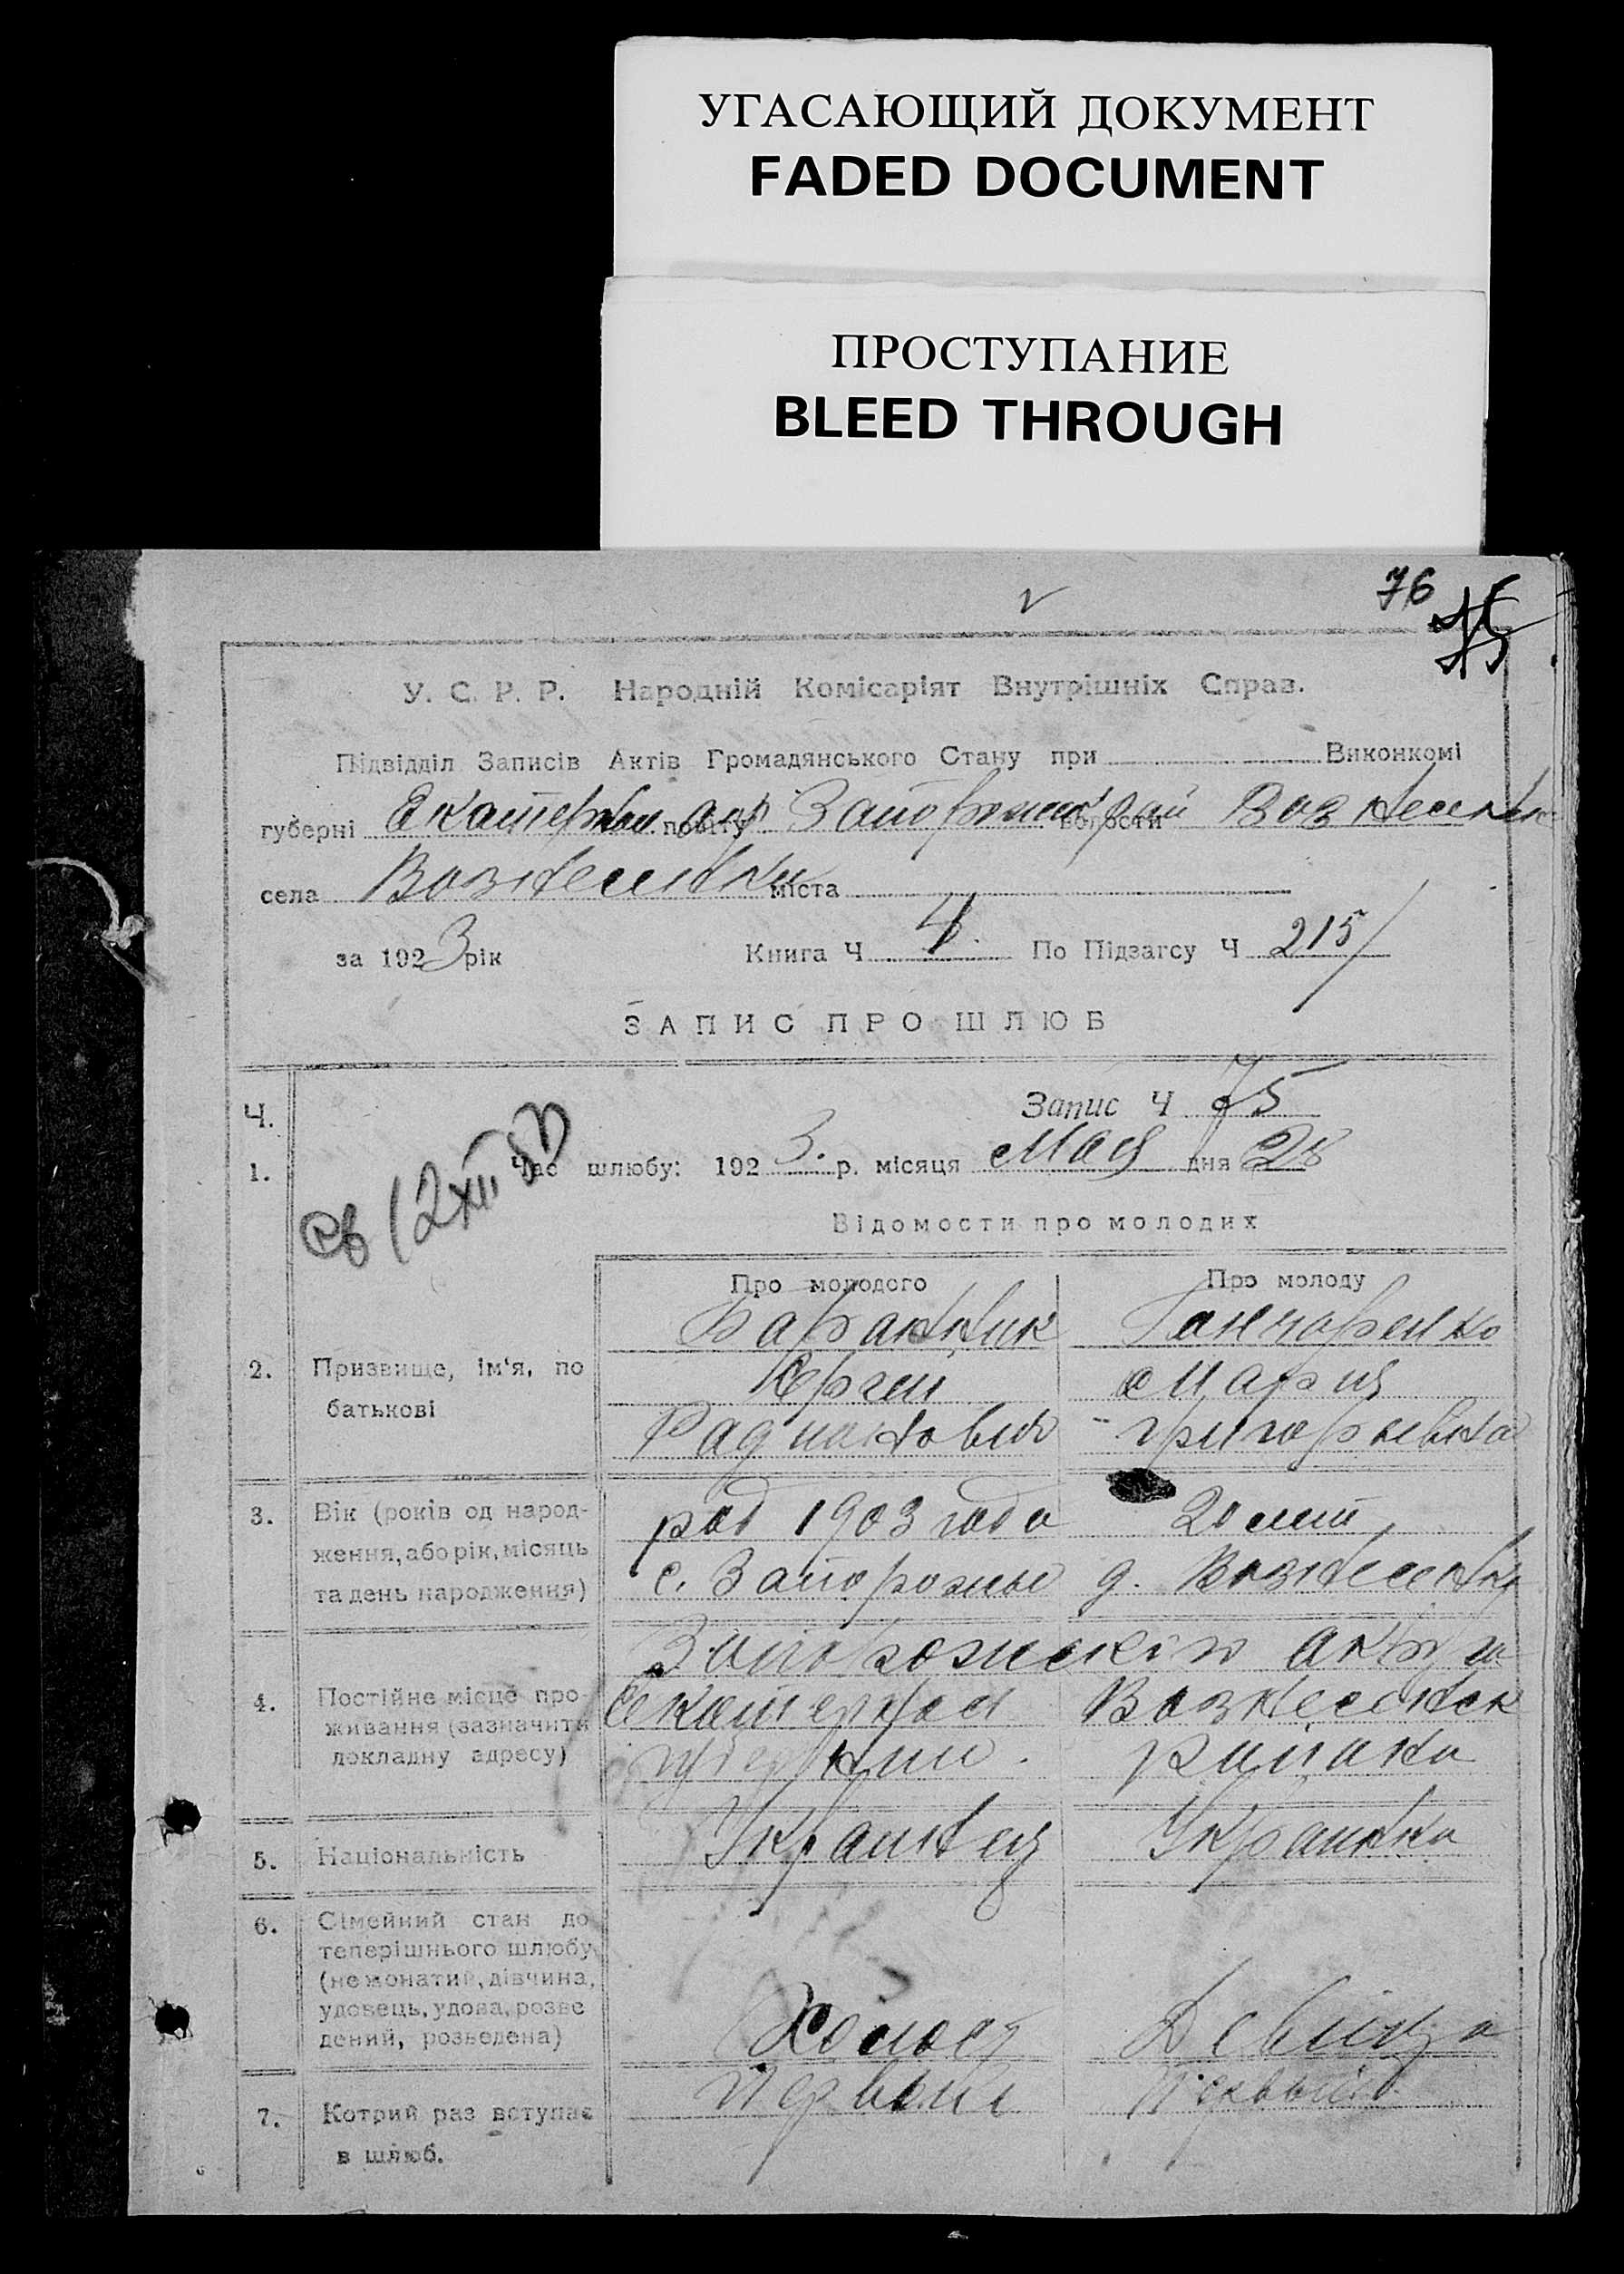 УГАСАЮЩИЙ ДОКУМЕНТ
FADED DOCUMENT
ПРОСТУПАНИЕ
BLEED THROUGH
76
У. С. Р. Р. Народній Комісаріят Внутрішніх Справ.
Підвідділ Записів Актів Громадянського Стану при Виконкомі
губерні повіту волости
села Вознесенки міста
за 1923 рік Книга Ч 4. По Підзагсу Ч 215
ЗАПИС ПРО ШЛЮБ
Ч. Запис Ч 75
1. Час шлюбу: 1923. р. місяця Мая дня 28
Відомости про молодих
Про молодого Про молоду
Баранник Ганчаренко
2. Призвище, ім‘я, по Сергей Мария
батькові Григорьевна
3. Вік (років од народ- род 1903 года 20 лет
ження, або рік, місяць с. Запорожье д. Вознесенка
та день народження)
Запорожского
4. Постійне місце про- Екатеринос Вознесенск
живання (зазначити губернии района
докладну адресу)
5. Національність Украинец Украинка
6. Сімейний стан до
теперішнього шлюбу
(не жонатий, дівчина,
удовець, удова, розве
дений, розведена) Холост Девица
7. Котрий раз вступає Первый Первый
в шлюб.